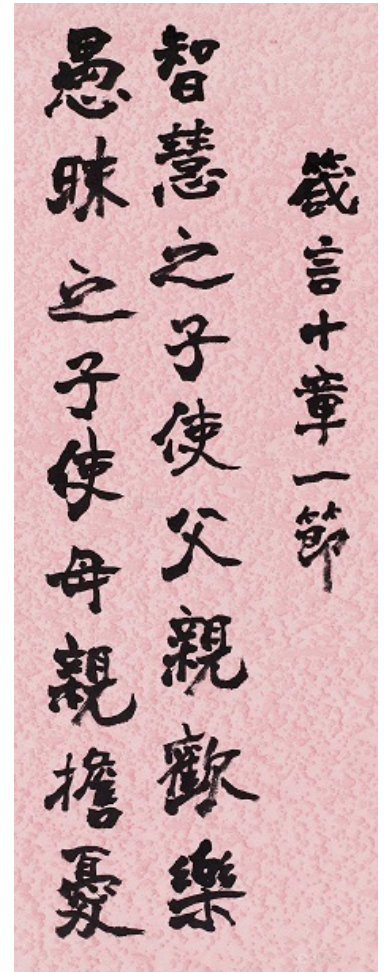 箴言十章一節
智慧之子使父親歡樂
愚昧之子使母親擔憂